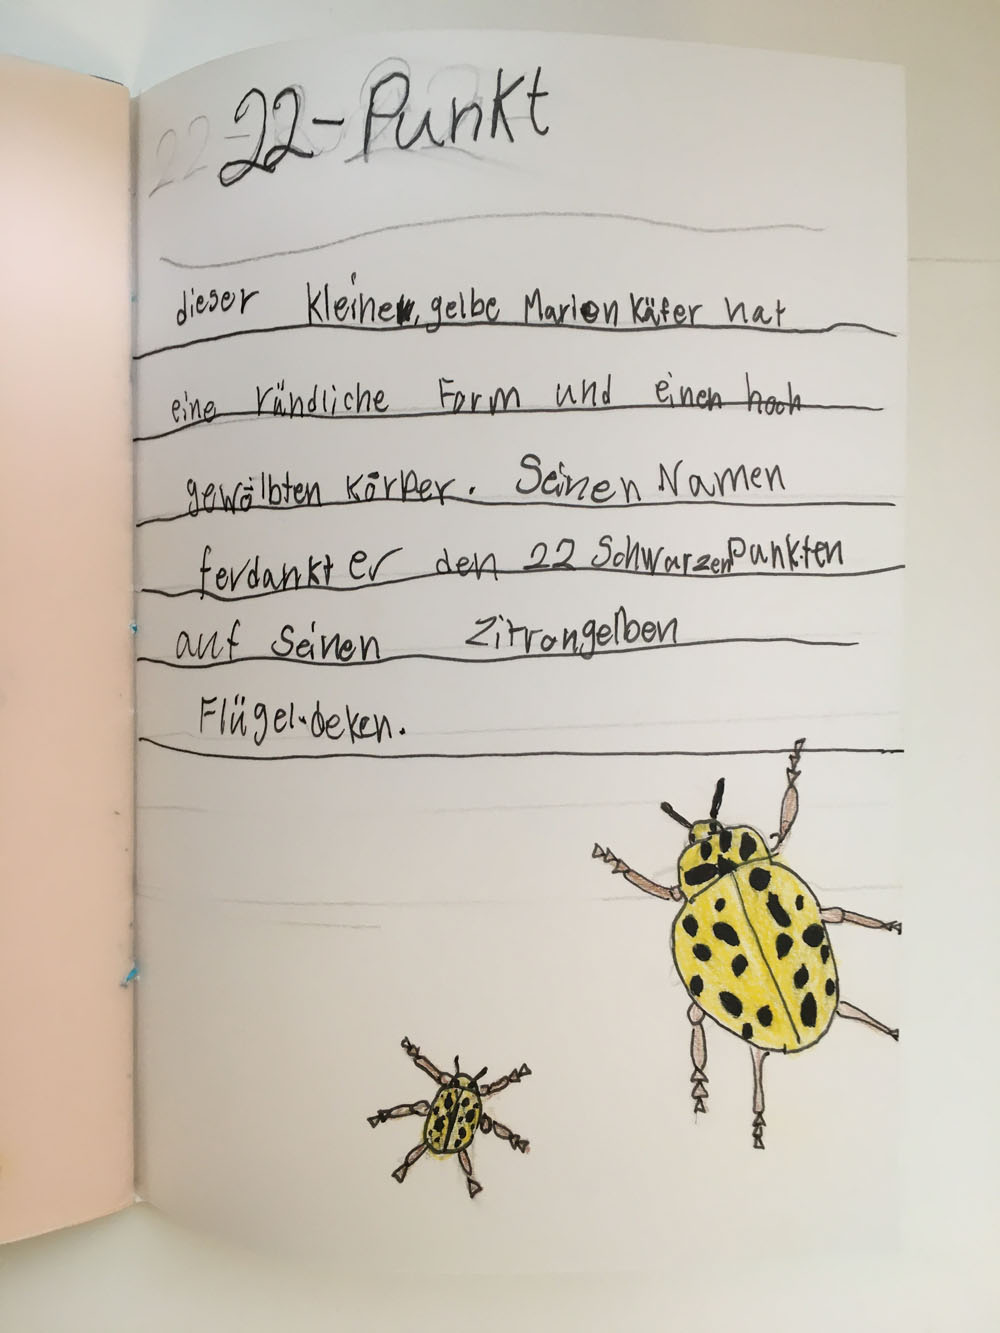 22-Punkt
dieser kleine, gelbe Marienkäfer hat
eine ründliche Form und einen hoch
gewölbten körper. Seinen Namen
ferdankt er den 22 Schwarzen Punkten
auf Seinen Zitrongelben
Flügel·deken.